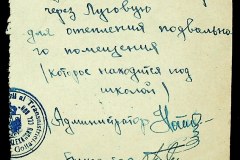 через Луговую
для отепления подвально
го помещения
(которое находится под
школой)
Администратор